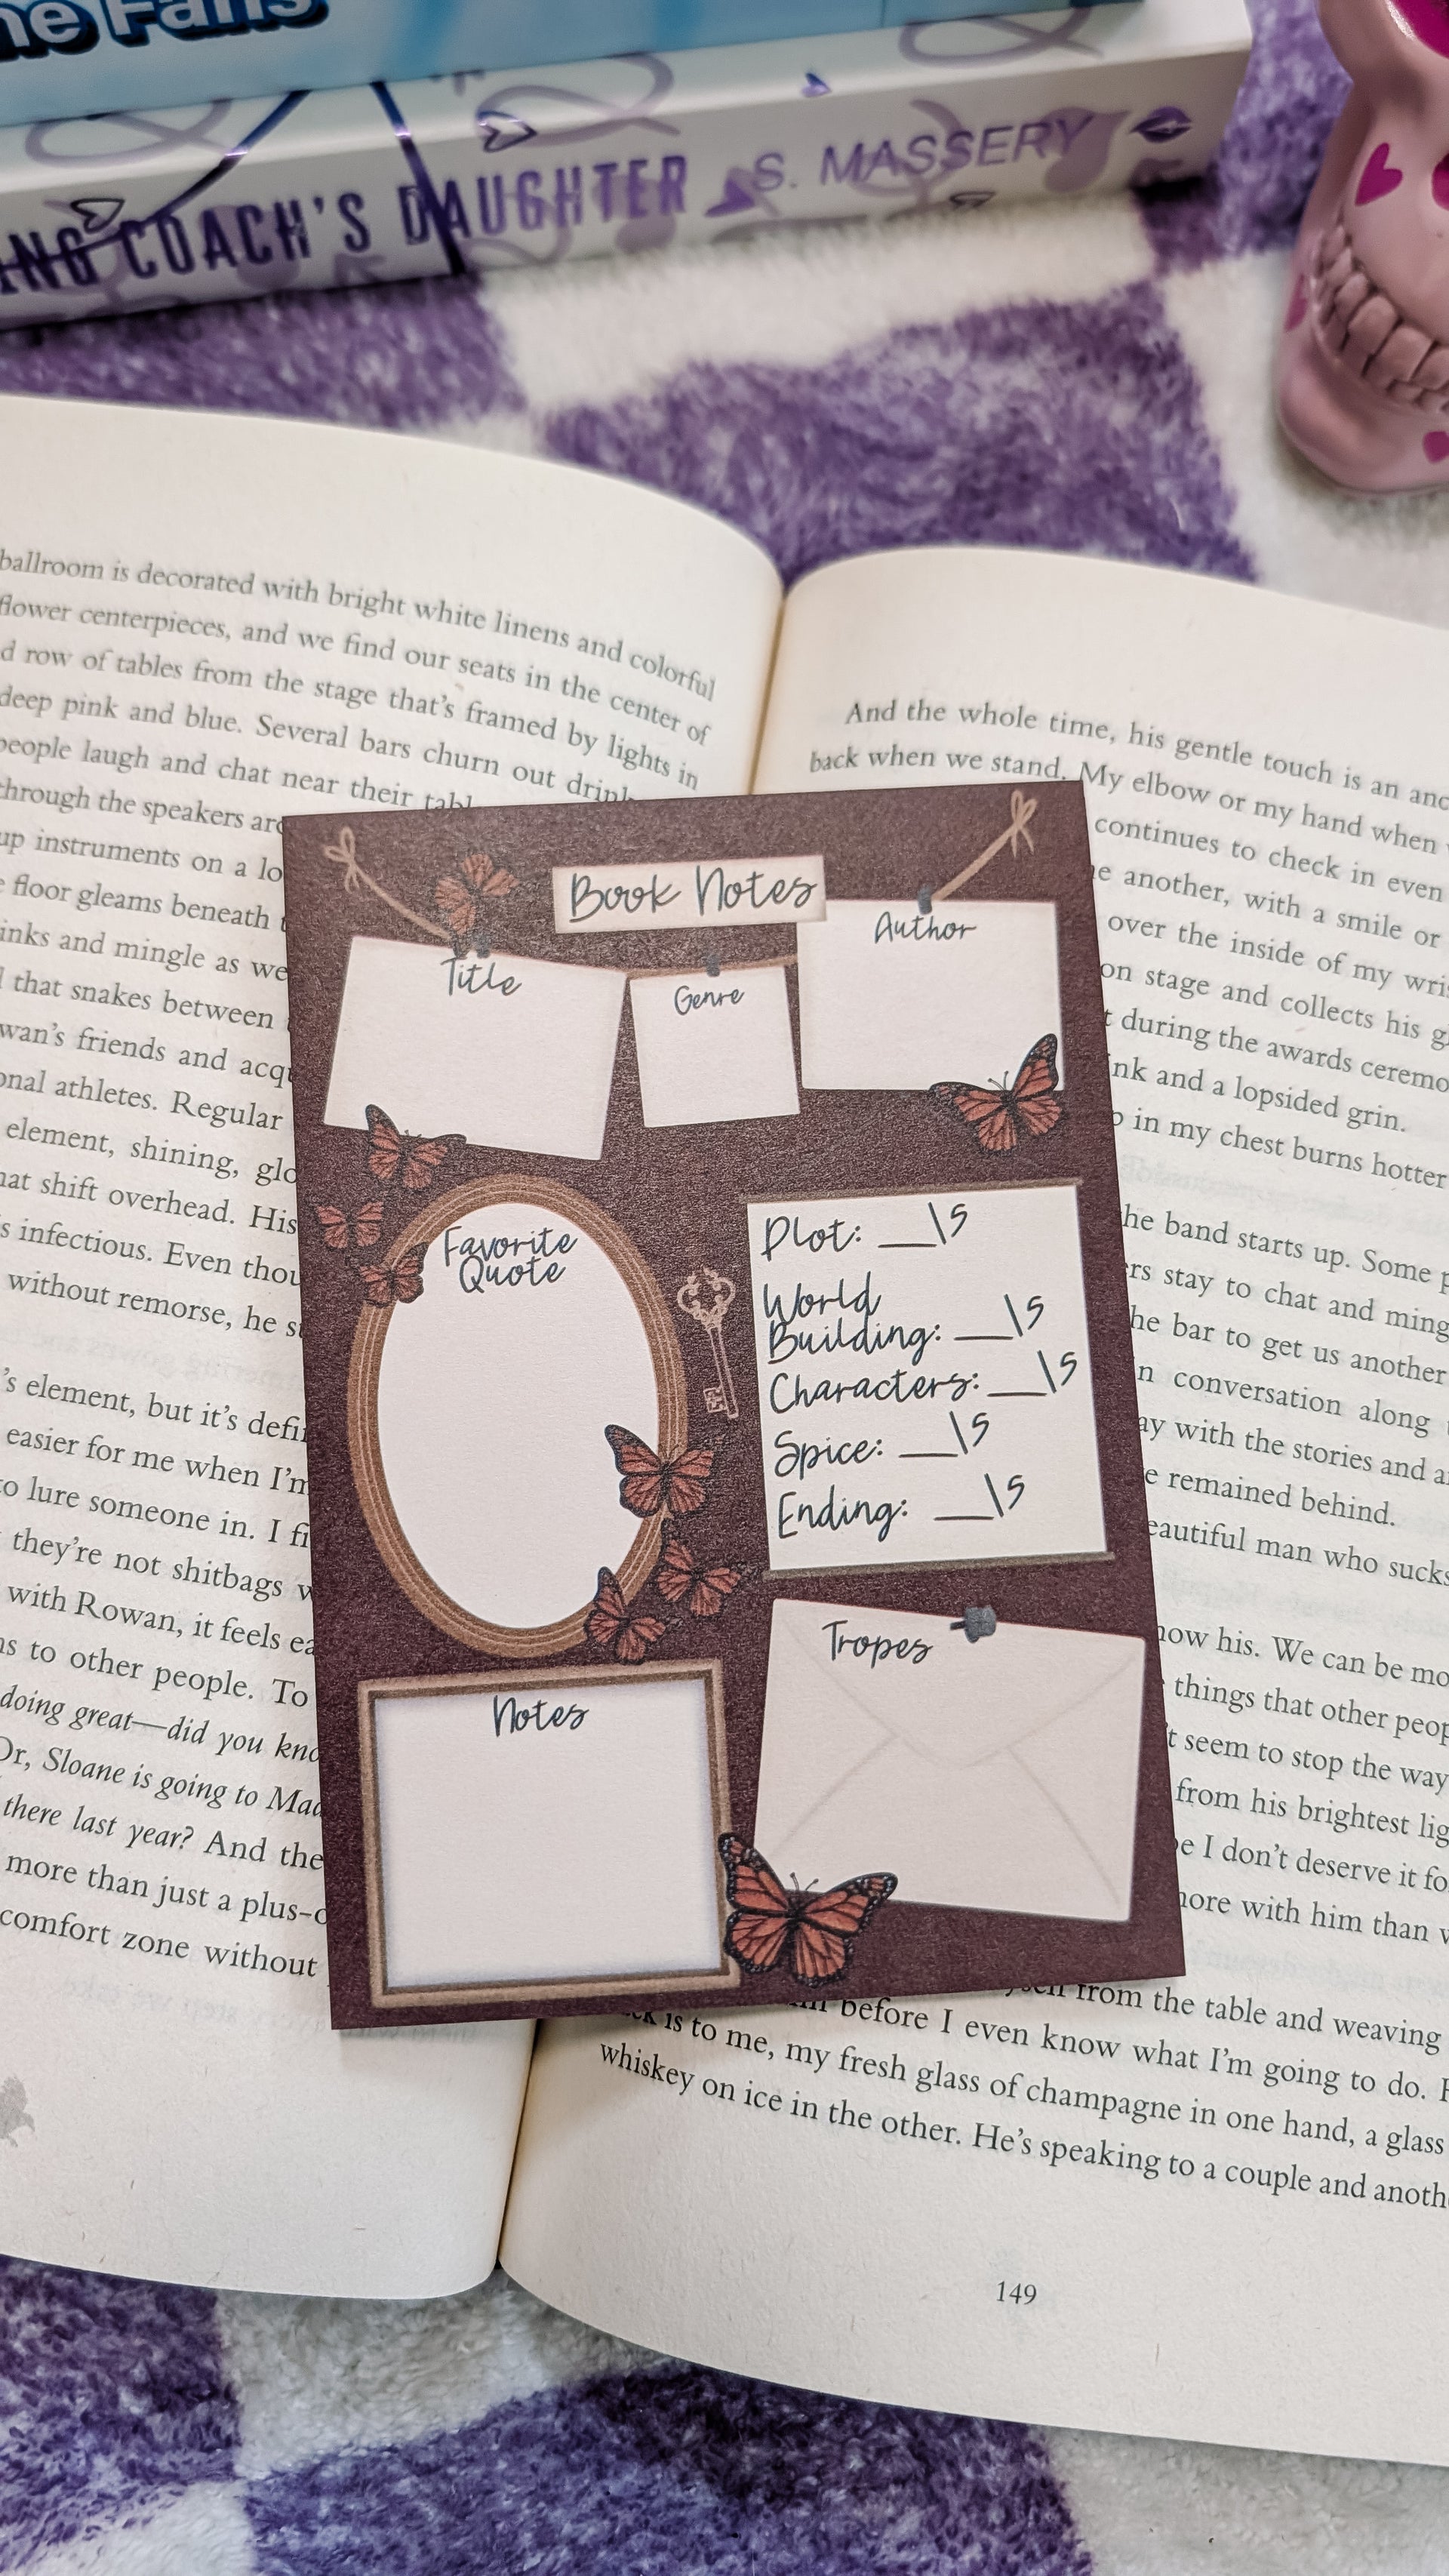 he Fans
ING COACH'S DAUGHTER S. MASSERY
ballroom is decorated with bright white linens and colorful
flower centerpieces, and we find our seats in the center of
d row of tables from the stage that's framed by lights in
deep pink and blue. Several bars churn out drink
people laugh and chat near their tabl
through the speakers aro
up instruments on a lo
e floor gleams beneath
inks and mingle as we
l that snakes between
wan's friends and acqu
onal athletes. Regular
element, shining, glo
hat shift overhead. His
s infectious. Even thou
without remorse, he s
's element, but it's defin
easier for me when I'm
to lure someone in. I fi
they're not shitbags w
with Rowan, it feels ea
ns to other people. To
doing great—did you kno
Or, Sloane is going to Mad
there last year? And the
more than just a plus-o
comfort zone without
And the whole time, his gentle touch is an anc
back when we stand. My elbow or my hand when
continues to check in even
ne another, with a smile or
over the inside of my wris
on stage and collects his g
t during the awards ceremo
ink and a lopsided grin.
p in my chest burns hotter
he band starts up. Some p
ers stay to chat and ming
he bar to get us another
n conversation along
ay with the stories and a
e remained behind.
eautiful man who sucks
now his. We can be mo
things that other peop
t seem to stop the way
from his brightest lig
be I don't deserve it fo
more with him than w
yself from the table and weaving
before I even know what I'm going to do. H
ck is to me, my fresh glass of champagne in one hand, a glass
whiskey on ice in the other. He's speaking to a couple and anoth
149
Book Notes
Title
Genre
Author
Favorite
Quote
Plot: __\5
World
Building: __\5
Characters: __\5
Spice: __\5
Ending: __\5
Notes
Tropes